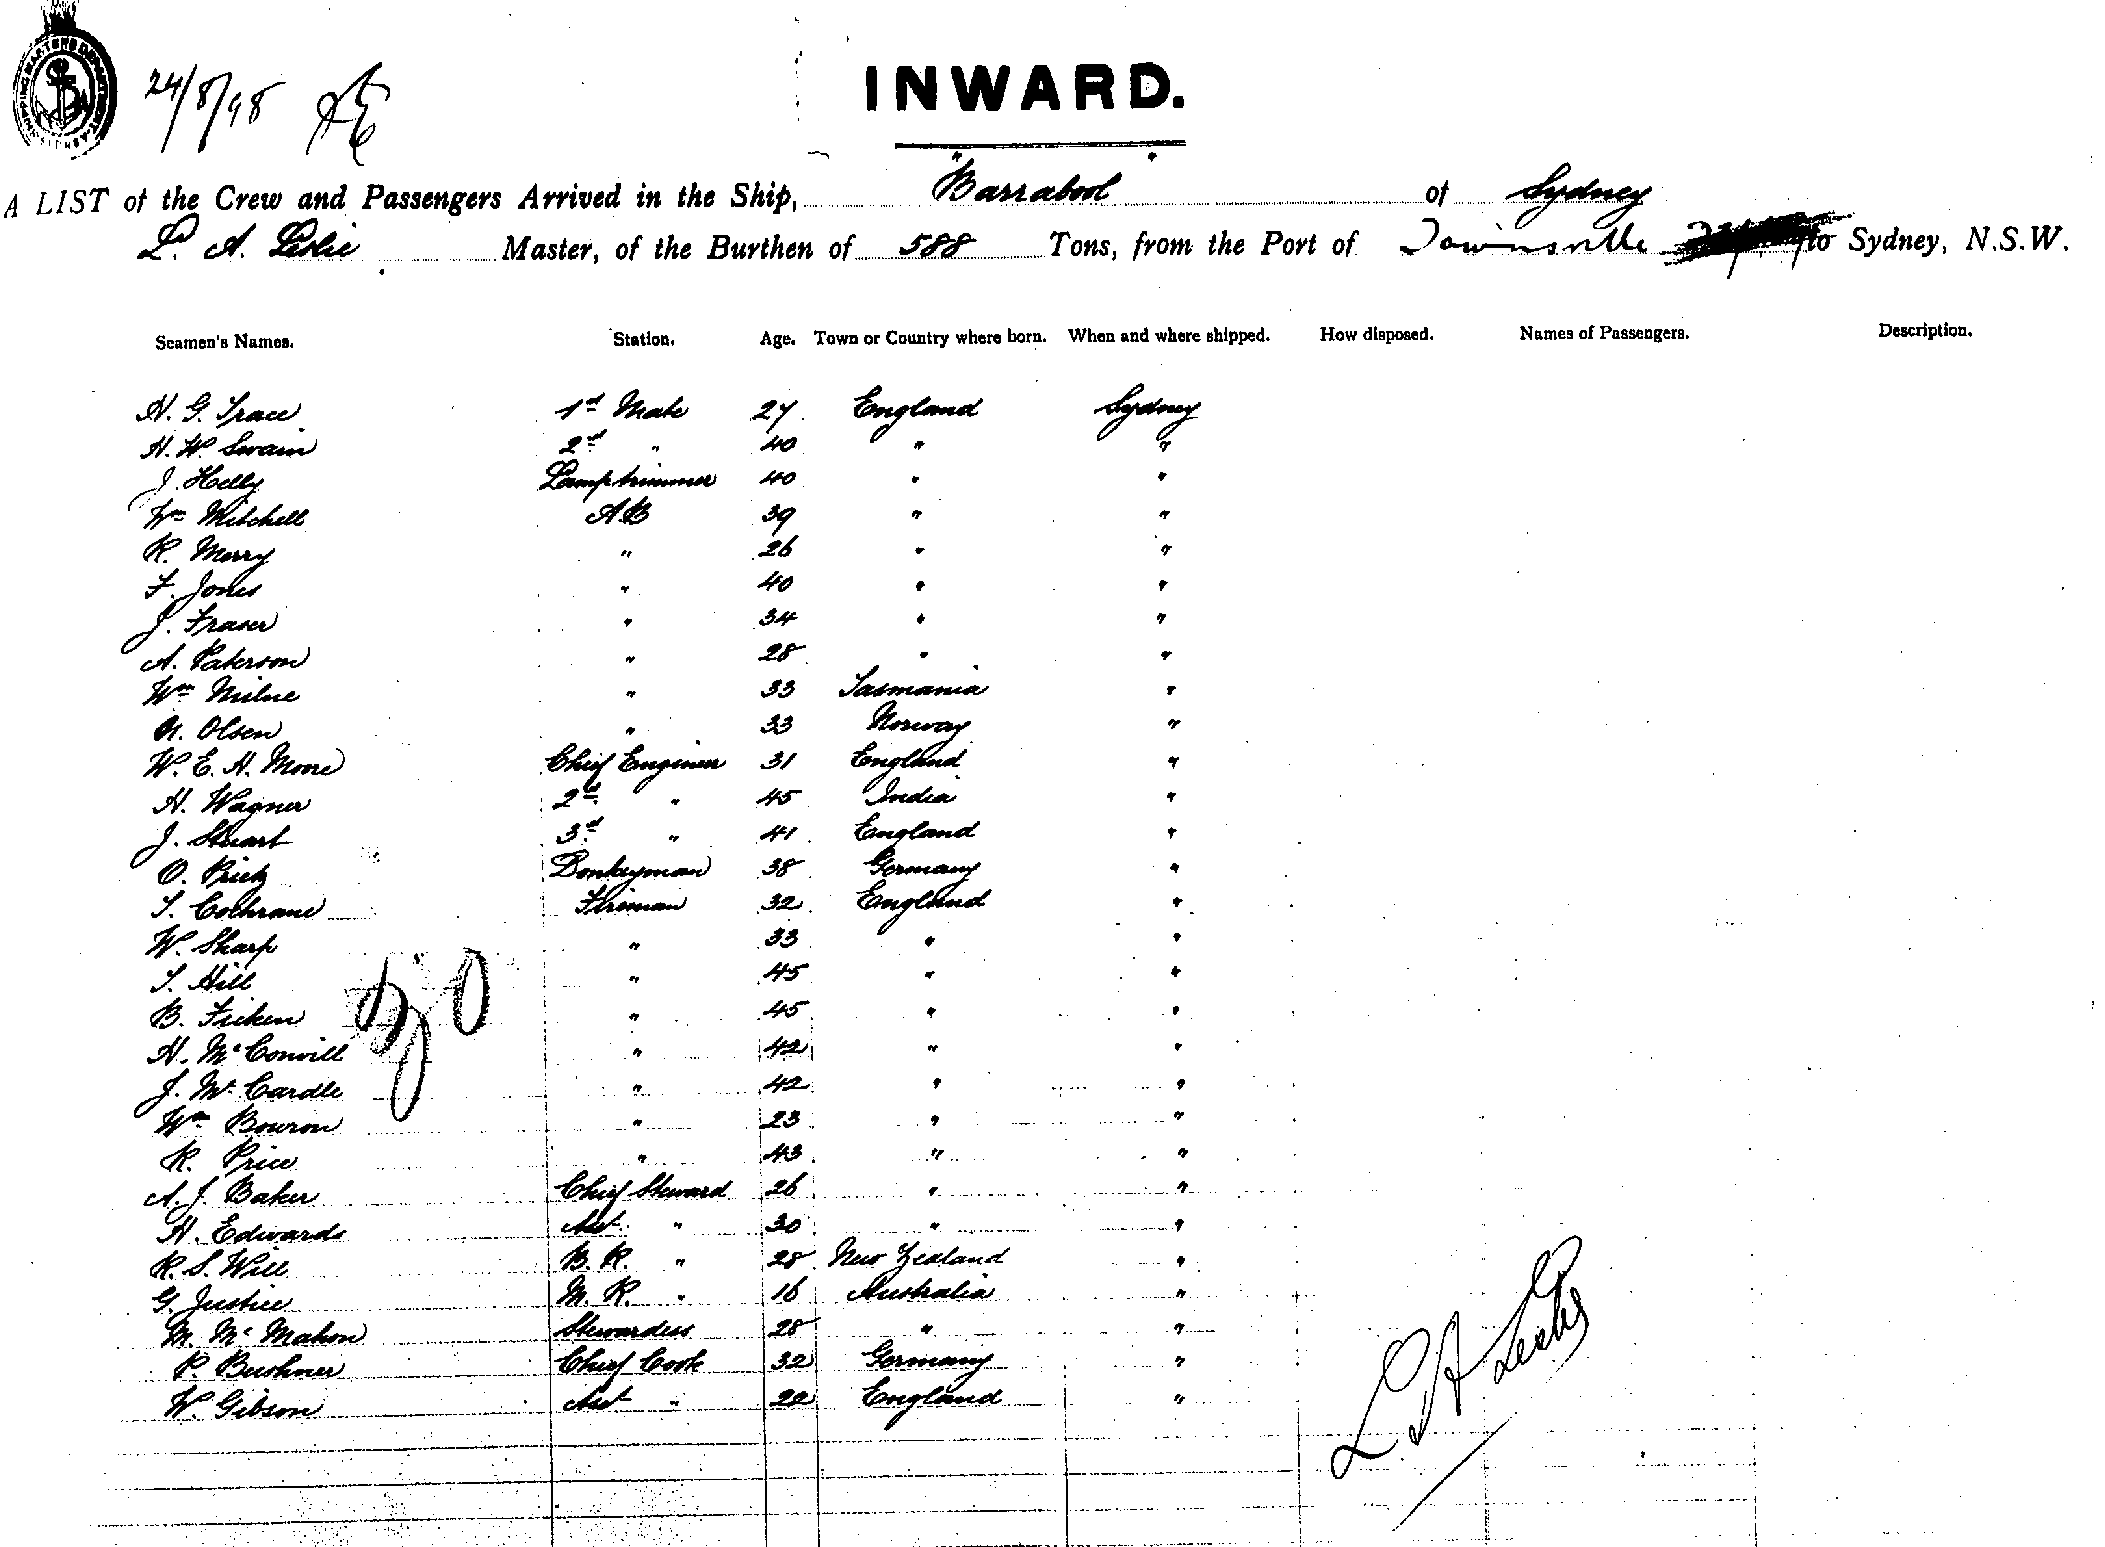 24/8/98
INWARD.
A LIST of the Crew and Passengers Arrived in the Ship, "Barrabool" of Sydney
L. A. Leslie Master, of the Burthen of 588 Tons, from the Port of Townsville to Sydney, N.S.W.
Seamen's Names. Station. Age. Town or Country where born. When and where shipped. How disposed. Names of Passengers. Description.
H. G. Trace 1st Mate 27 England Sydney
H. W. Swain 2nd " 40 " "
J. Kelly Lamptrimmer 40 " "
Wm Mitchell AB 39 " "
R. Merry " 26 " "
F. Jones " 40 " "
J. Fraser " 34 " "
A. Paterson " 28 " "
Wm Milne " 33 Tasmania "
N. Olsen " 33 Norway "
W. E. H. Moore Chief Engineer 31 England "
H. Wagner 2nd " 45 India "
J. Stuart 3rd " 41 England "
O. Prietz Donkeyman 38 Germany "
T. Cochrane Fireman 32 England "
W. Sharp " 33 " "
T. Hill " 45 " "
B. Ficken " 45 " "
H. McConvill " 42 " "
J. McCardle " 42 " "
Wm Bowron " 23 " "
R. Price " 43 " "
A. J. Baker Chief Steward 26 " "
H. Edwards Asst " 30 " "
R. S. Will B. R. " 28 New Zealand "
G. Justice M. R. " 16 Australia "
M. McMahon Stewardess 28 " "
P. Bushner Chief Cook 32 Germany "
W. Gibson Asst " 22 England "
30
L A Leslie